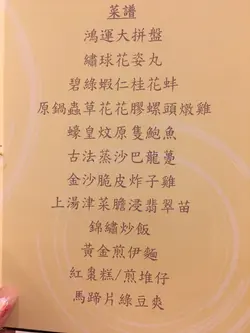 菜譜
鴻運大拼盤
繡球花姿丸
碧綠蝦仁桂花蚌
原鍋蟲草花花膠螺頭燉雞
蠔皇炆原隻鮑魚
古法蒸沙巴龍躉
金沙脆皮炸子雞
上湯津菜膽浸翡翠苗
錦繡炒飯
黃金煎伊麵
紅棗糕/煎堆仔
馬蹄片綠豆爽